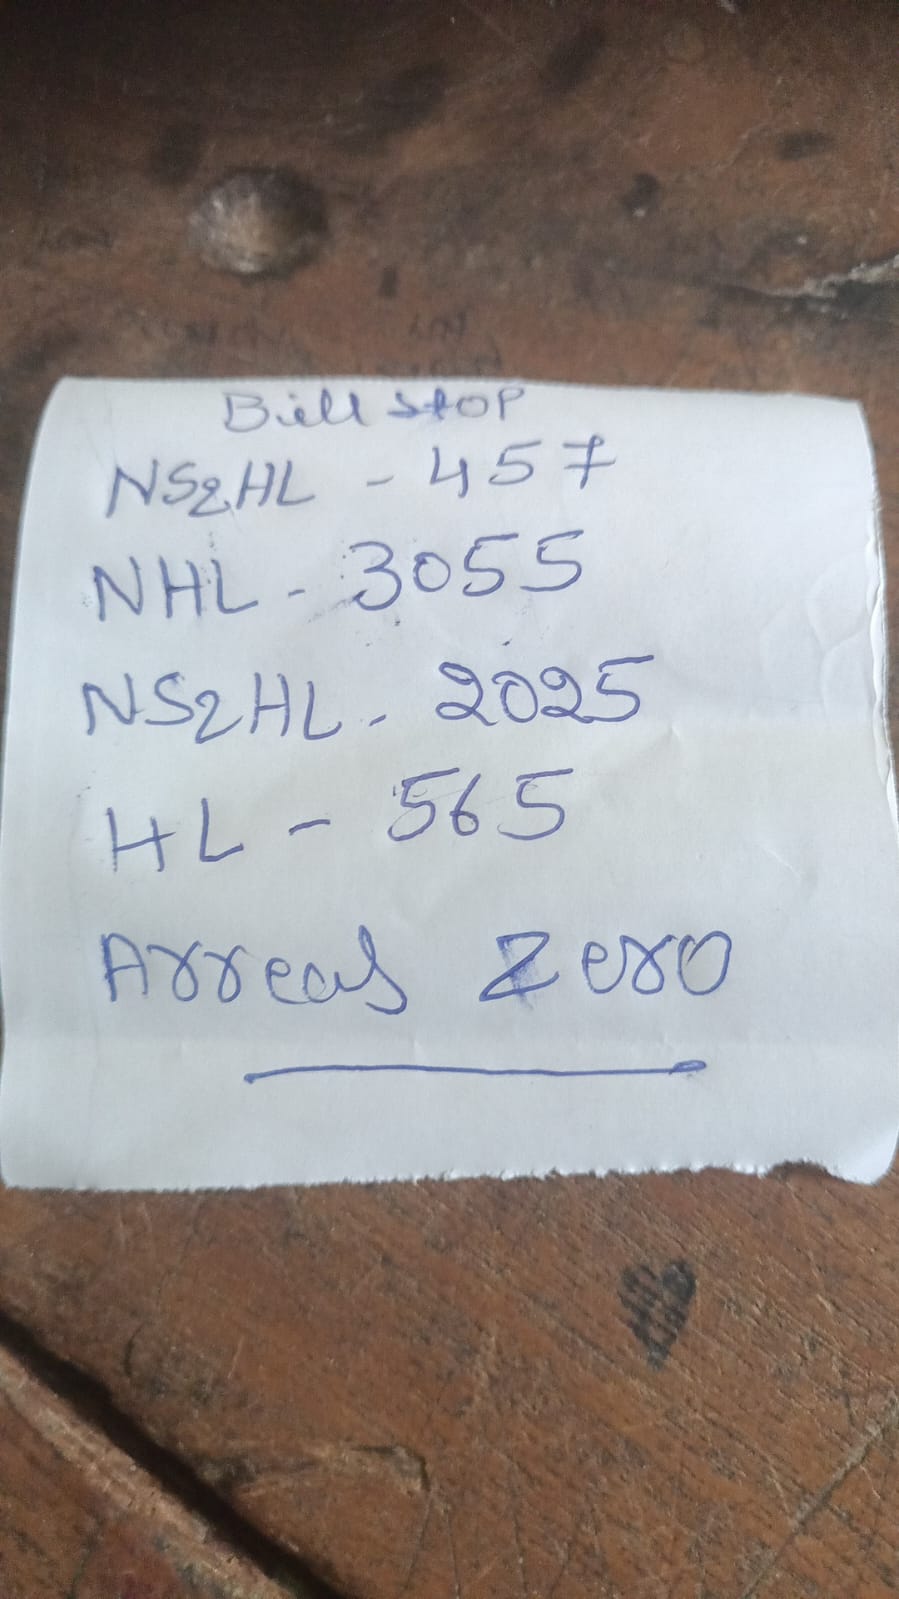 Bill stop
NS2HL - 457
NHL - 3055
NS2HL - 2025
HL - 565
Arrears Zero